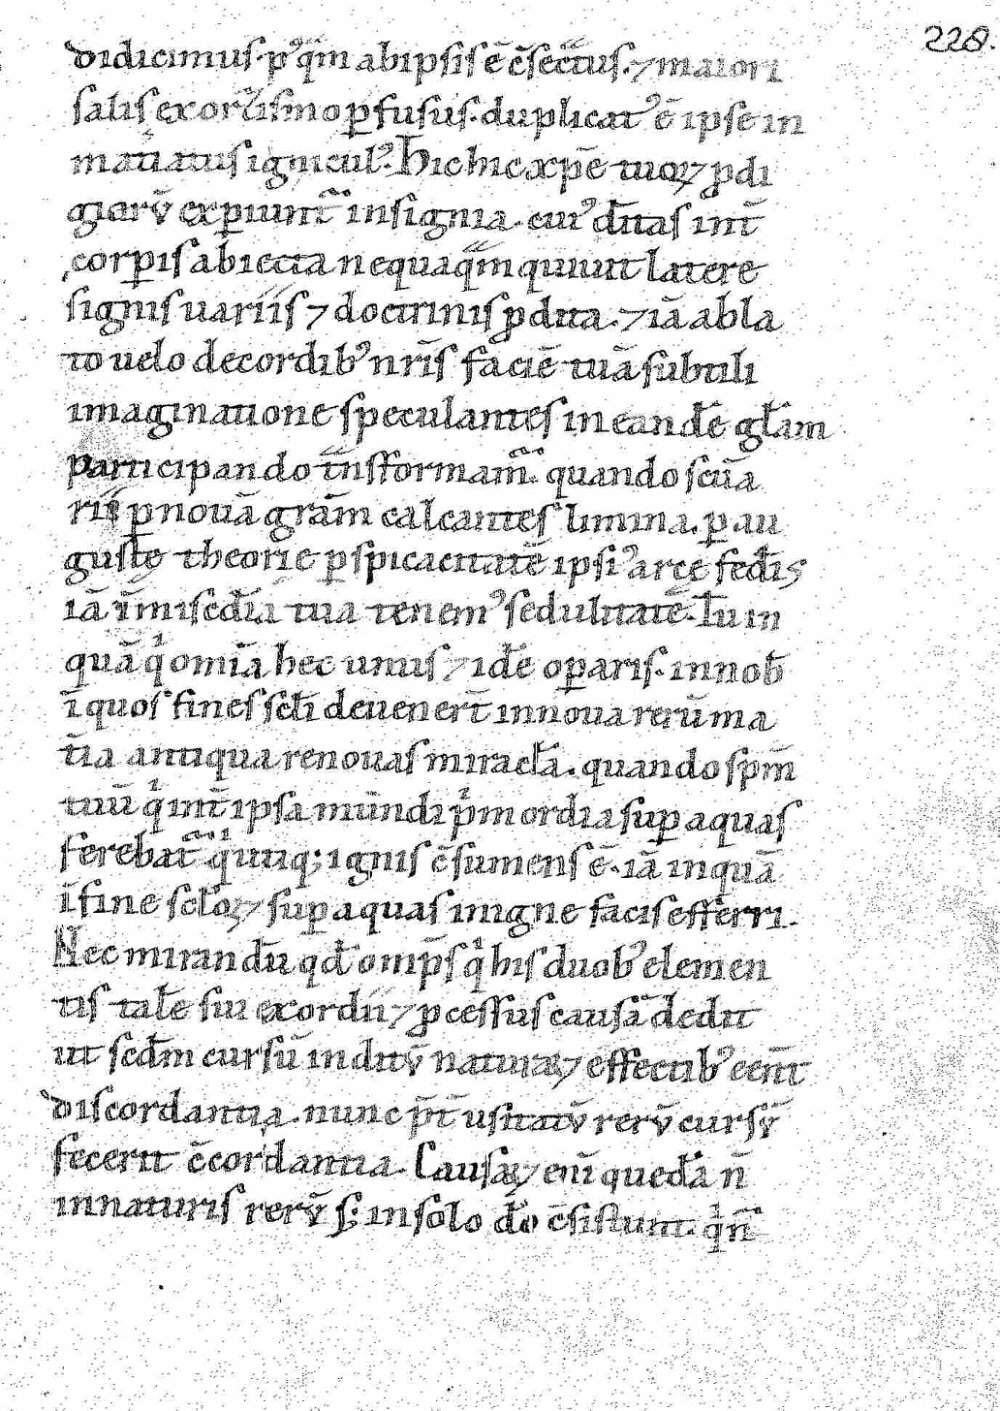 228.
didicimus. pꝰq̃m ab ipsis ē c̄secͭus. ⁊ maiori
salis exorcismo ꝑfusus. duplicatꝰ ē ipse in
materiatus igniculꝰ. Hic hic xp̄e tuoꝝ ꝓdi
giorū exꝑiunt̃ insignia. cuiꝰ d̄itas int̄
corꝑis abiecta nequaq̃m quiuit latere
signis uariis ⁊ doctrinis ꝓdita. ⁊ iā abla
to uelo de cordibꝰ nr̄is faciē tuā subtili
imaginatione speculantes in eandē gl̄am
participando t̃nsformam̃. quando scūa
riis ꝑ nouā grām calcantes limina. ꝑ au
guste theorie ꝑspicacitatē ipsiꝰ arcē fed̄is
iā ī misc̄dia tua tenemꝰ sedulitatē. Tu in
quā qͥ om̄ia hec unus ⁊ idē oꝑaris. in nob̄
ī quos fines scl̄i deuener̄t in noua rerū ma
t̄ia antiqua renouas miracl̄a. quando sp̄m
tuū qͥ int̄ ipsa mundi pͥmordia suꝑ aquas
ferebat̃ qͥ utiq; ignis c̄sumens ē. iā inquā
ī fine scl̄oꝝ suꝑ aquas in igne facis efferri.
Nec mirandū qd̄ omīps qͥ his duobꝰ elemen
tis talē sui exordii ⁊ ꝓcessus causā dedit
ut scd̄m cursū inditū naturaꝝ effectibꝰ eēnt
discordantia. nunc p̄t̄ usitatū rerū cursū
fecerit c̄cordantia. Causaꝝ enī quedā n̄
in naturis rerū s; in solo dō c̄sistunt. qͥn